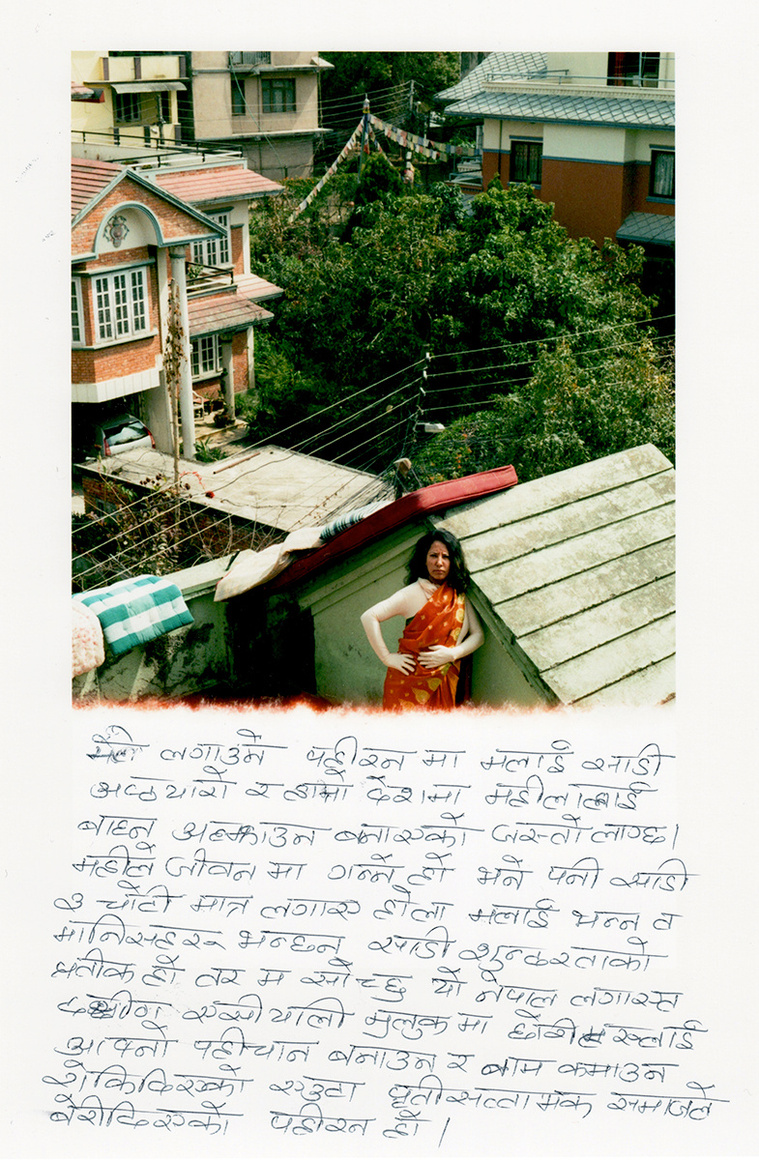 मैले लगाउने पहीरन मा मलाई साडी
अठ्यारो र हाम्रो देशमा महीलालाई
बाध्न अल्झाउन बनाएको जस्तो लाग्छ।
मैले जीवन मा गन्ने हो भने पनी साडी
३ चोटी मात्र लगाए होला मलाई भन्न त
मानिसहरू भन्छन् साडी शुन्दरताको
प्रतीक हो तर म सोच्छु यो नेपाल लगाएत
दक्षीण एसीयाली मुलुक मा छोरीहरूलाई
आफ्नो पहीचान बनाउन र नाम कमाउन
रोकिदिएको एउटा पृतीसत्तामक समाजले
बेरीदिएको पहीरन हो।